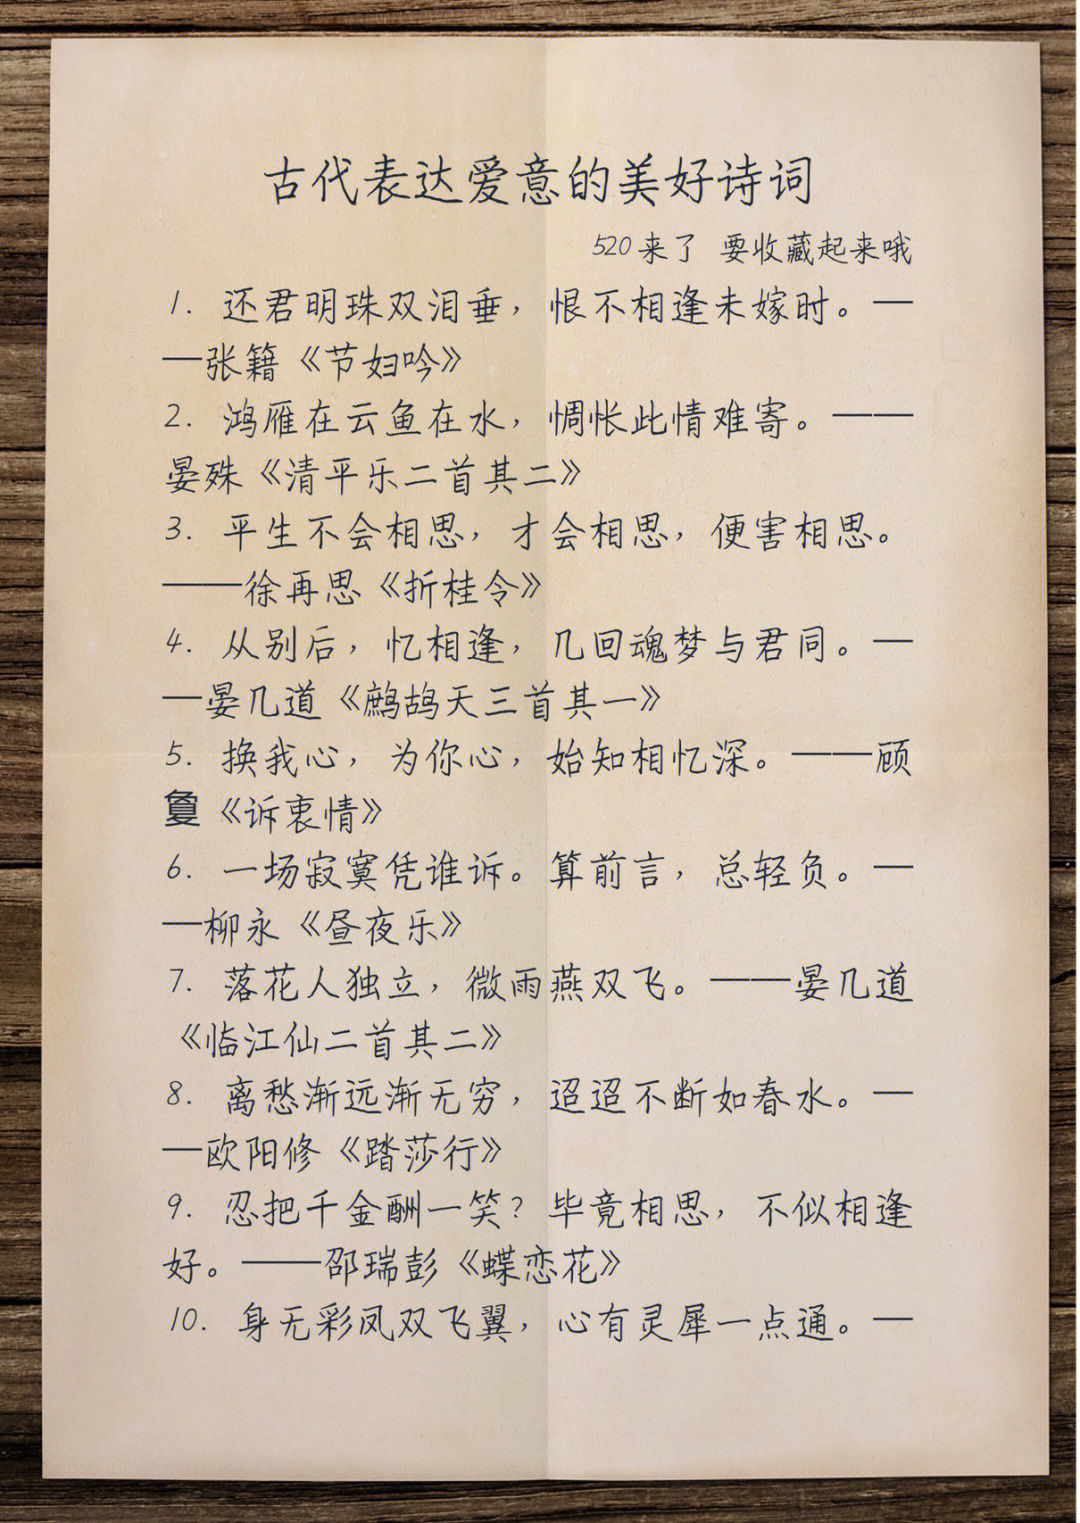 古代表达爱意的美好诗词
520来了 要收藏起来哦
1. 还君明珠双泪垂，恨不相逢未嫁时。—
—张籍《节妇吟》
2. 鸿雁在云鱼在水，惆怅此情难寄。——
晏殊《清平乐二首其二》
3. 平生不会相思，才会相思，便害相思。
——徐再思《折桂令》
4. 从别后，忆相逢，几回魂梦与君同。—
—晏几道《鹧鸪天三首其一》
5. 换我心，为你心，始知相忆深。——顾
敻《诉衷情》
6. 一场寂寞凭谁诉。算前言，总轻负。—
—柳永《昼夜乐》
7. 落花人独立，微雨燕双飞。——晏几道
《临江仙二首其二》
8. 离愁渐远渐无穷，迢迢不断如春水。—
—欧阳修《踏莎行》
9. 忍把千金酬一笑？毕竟相思，不似相逢
好。——邵瑞彭《蝶恋花》
10. 身无彩凤双飞翼，心有灵犀一点通。—